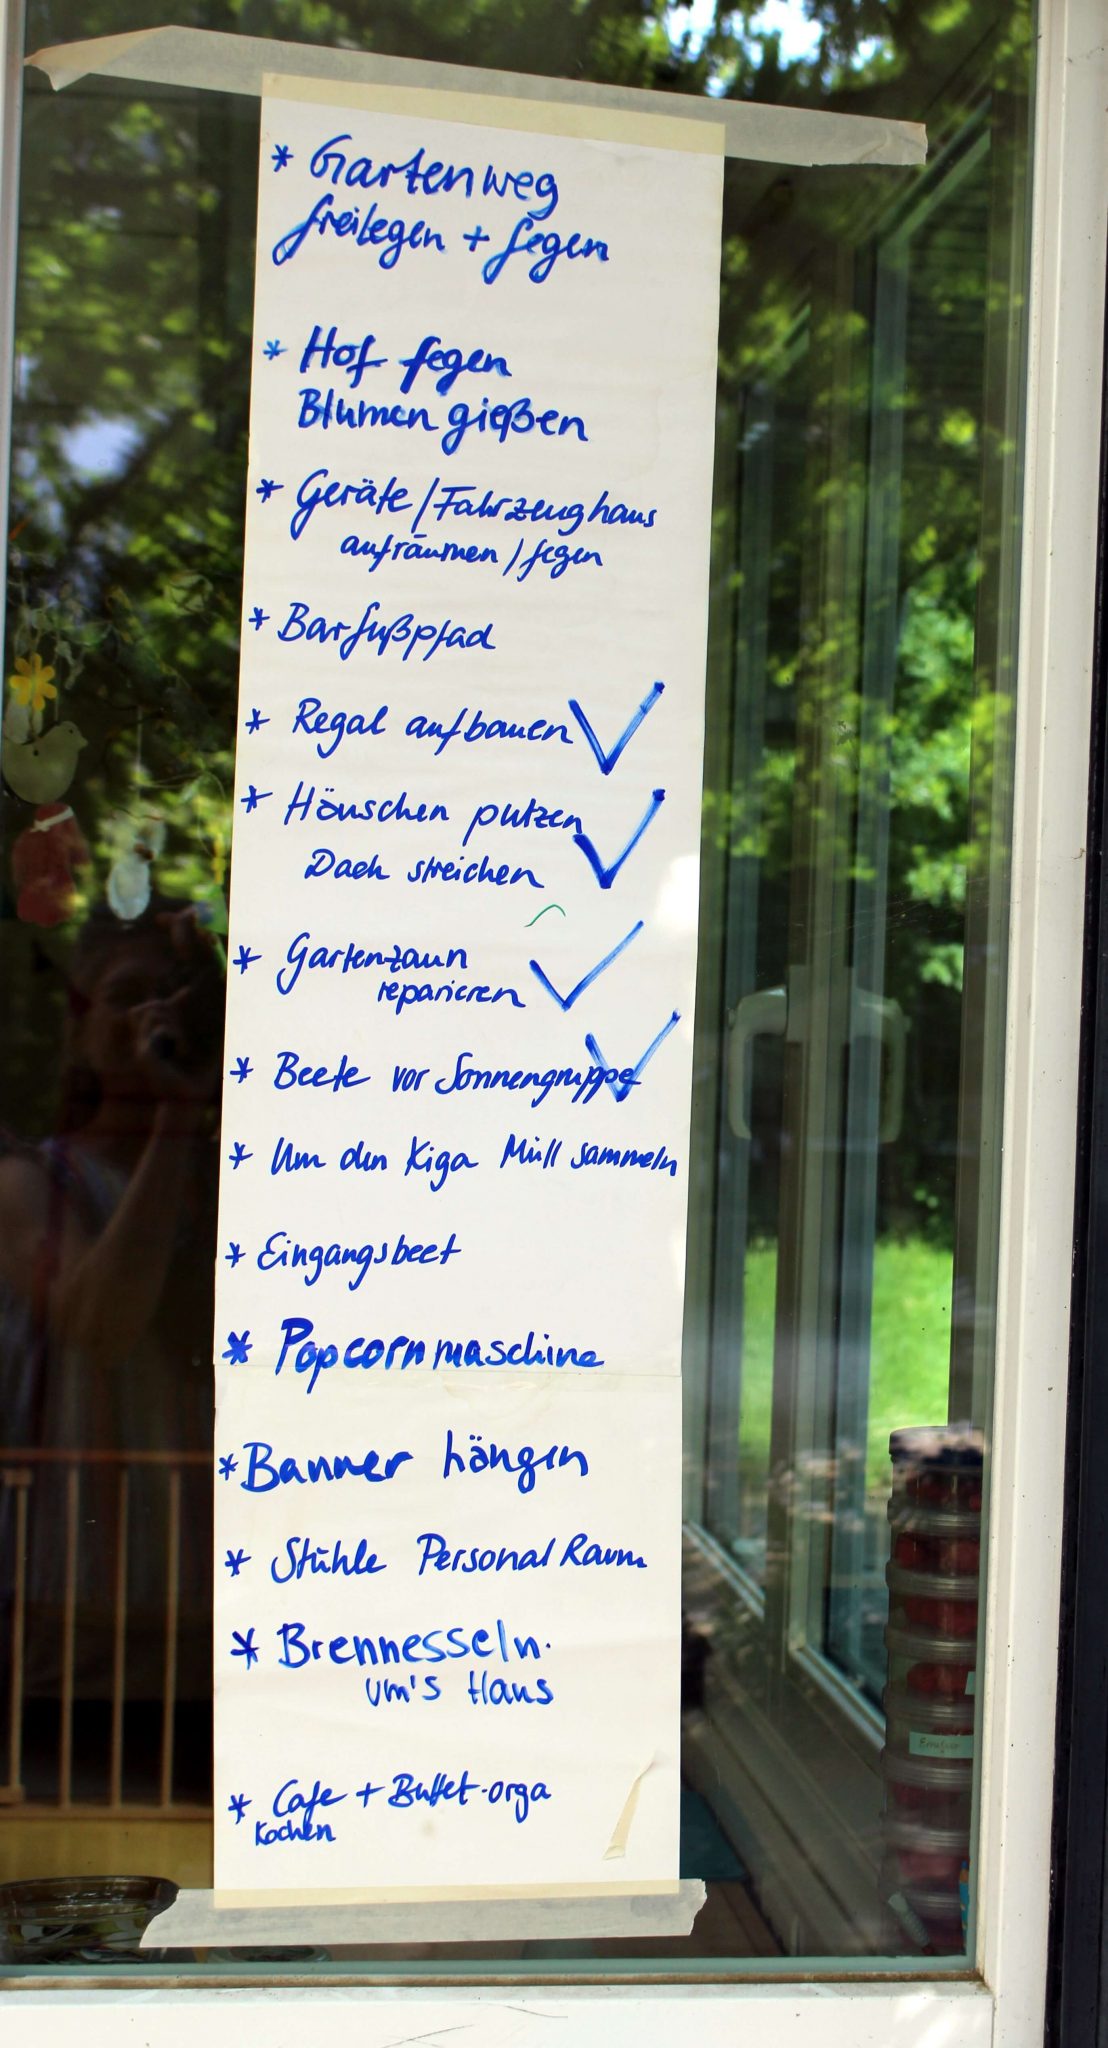 * Gartenweg
freilegen + fegen
* Hof fegen
Blumen gießen
* Geräte / Fahrzeughaus
aufräumen / fegen
* Barfußpfad
* Regal aufbauen ✓
* Häuschen putzen
Dach streichen ✓
* Gartenzaun
reparieren ✓
* Beete vor Sonnengruppe ✓
* Um den Kiga Müll sammeln
* Eingangsbeet
* Popcornmaschine
* Banner hängen
* Stühle Personal Raum
* Brennesseln.
um's Haus
* Cafe + Buffet-orga
Kochen